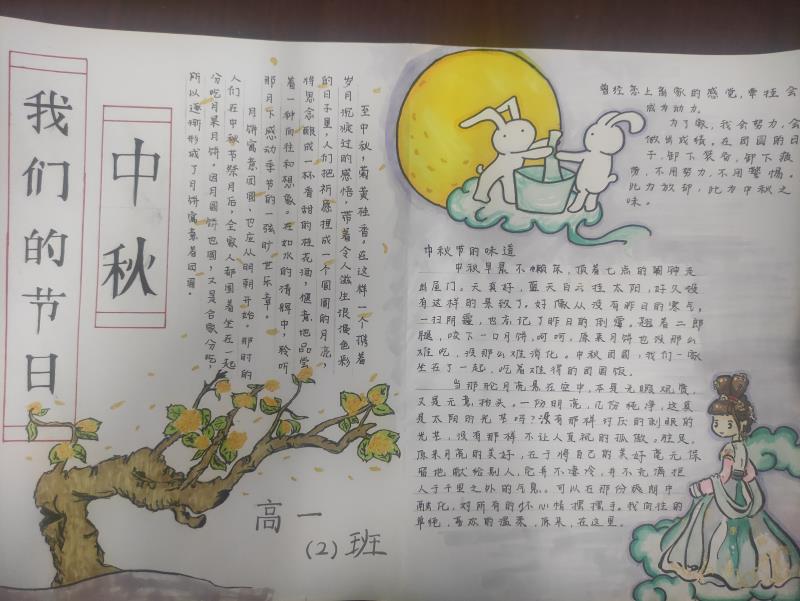 我们的节日
中秋
至中秋，菊黄桂香。在这样一个携着
岁月沉淀过的感悟，带着令人滋生浪漫色彩
的日子里，人们把祈愿捏成一个圆圆的月亮，
将思念酿成一杯香甜的桂花酒，惬意地品尝
着一种向往和想象。在如水的清辉中，聆听
那月下感动季节的一弦旷世乐章。
月饼寓意团圆，也应从明朝开始。那时的
人们在中秋节祭月后，全家人都围着坐在一起
分吃月果月饼。因月圆饼也圆，又是合家分吃，
所以逐渐形成了月饼寓意着团圆。
高一
（2）班
曾经恋上离家的感觉，牵挂会
成为动力。
为了家，我会努力，会
做出成绩。在团圆的日
子，卸下装备，卸下疲
惫，不用努力，不用警惕。
此为故邰，此为中秋之
味。
中秋节的味道
中秋早晨不懒床，顶着七点的闹钟走
出屋门。天真好，蓝天白云挂太阳，好久没
有这样的景致了。好像从没有昨日的寒气，
一扫阴霾，也忘记了昨日的倒霉。翘着二郎
腿，咬下一口月饼，呵呵，原来月饼也没那么
难吃，没那么难消化。中秋团圆，我们一家
坐在了一起，吃着难得的团圆饭。
当那轮月亮悬在空中，不是无暇玩赏，
又是无意抬头。一份明亮，几份纯净，这竟
是太阳的光芒吗？没有那样灯灰的刺眼的
光芒，没有那样不让人直视的孤傲。胜是，
原来月亮的美好，在于将自己的美好毫无保
留地献给别人，它并不凄冷，并不充满拒
人于千里之外的气息。可以在那份爽朗中
融化，对所有的坏心情摆摆手。我向往的
单纯，喜欢的温柔，原来，在这里。